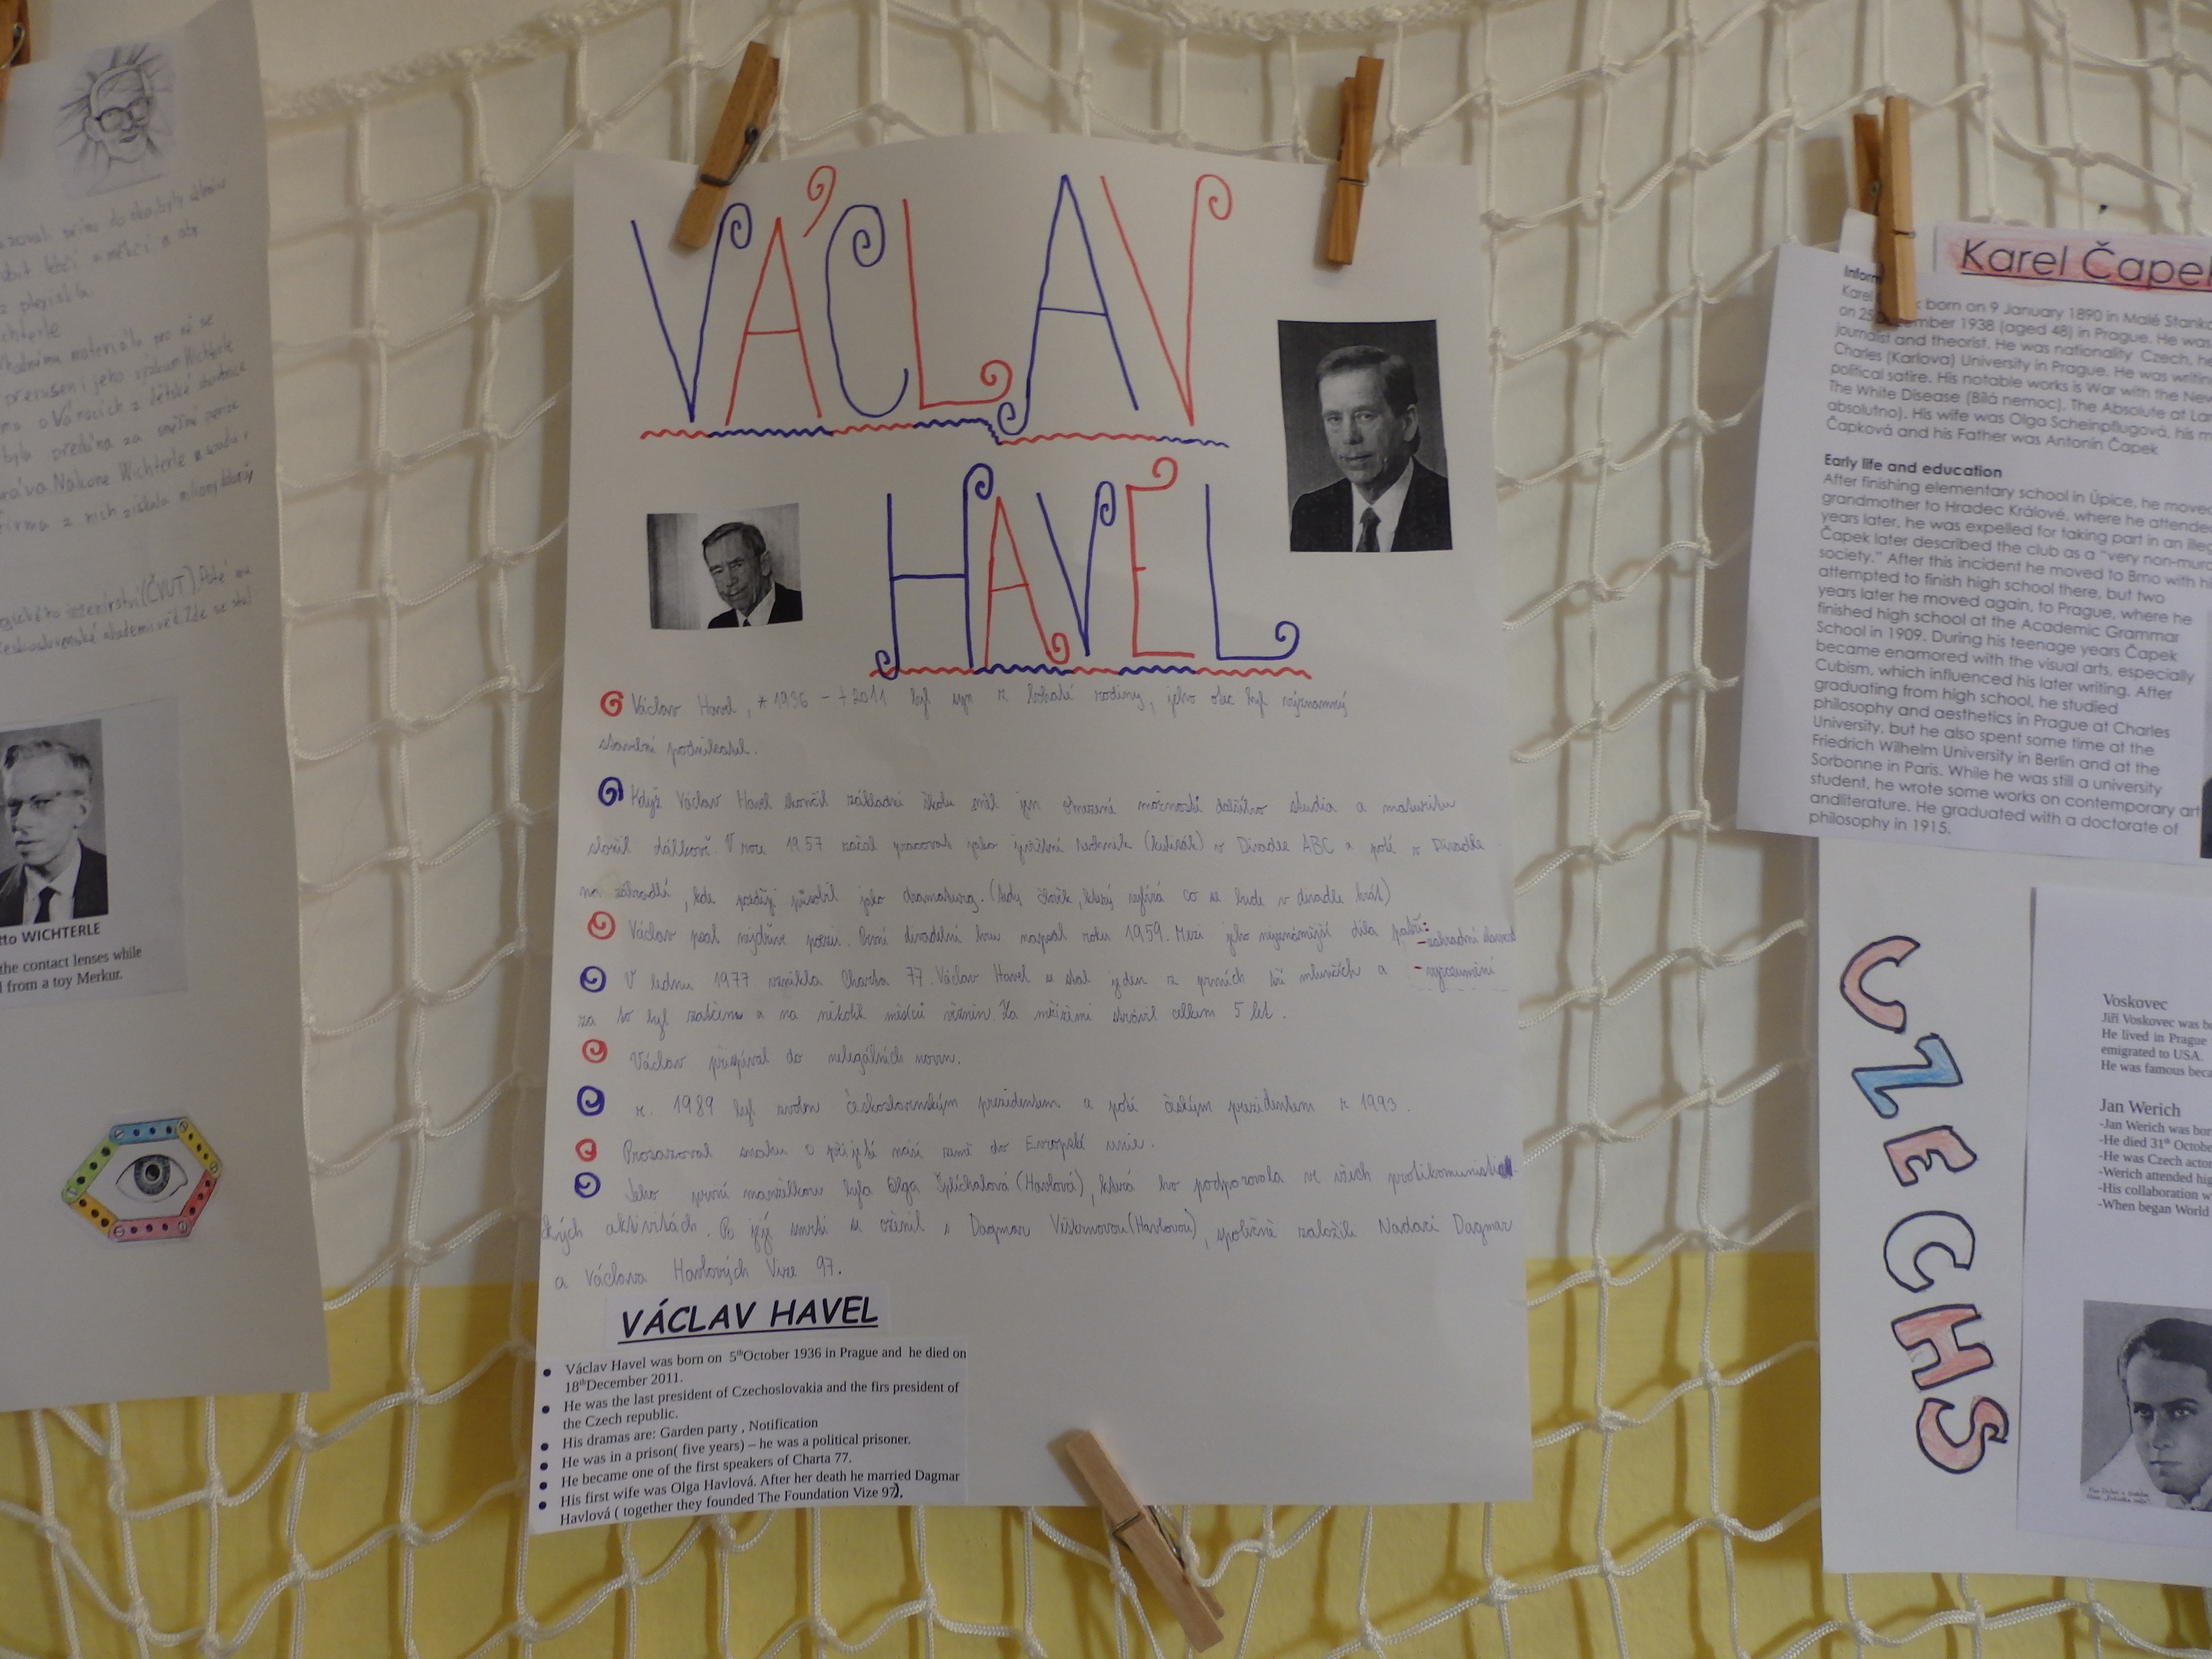 do oka, byly
z plexiskla
Wichterle
vhodnému materiálu pro ně se
přerušení jeho výzkum Wichterle
z dětské stavebnice
byla předána za směšný peníz
práva. Nakonec Wichterle
firma z nich získala miliony
inženýrství (ČVUT). Poté
Československé akademii věd. Zde se stal
tto WICHTERLE
the contact lenses while
l from a toy Merkur.
VÁCLAV
HAVEL
Václav Havel, *1936 - †2011 byl syn z bohaté rodiny, jeho otec byl významný
stavební podnikatel.
Když Václav Havel skončil základní školu měl jen omezené možnosti dalšího studia a maturitu
složil dálkově. V roce 1957 začal pracovat jako jevištní technik (kulisák) v Divadle ABC a poté v Divadle
na zábradlí, kde později působil jako dramaturg. (tedy člověk, který vybírá co se bude v divadle hrát)
Václav psal nejdříve poezii. První divadelní hru napsal roku 1959. Mezi jeho nejznámější díla patří:
- zahradní slavnost
V lednu 1977 vznikla Charta 77. Václav Havel se stal jeden z prvních tří mluvčích a
- vyrozumění
za to byl zatčen a na několik měsíců vězněn. Za mřížemi strávil celkem 5 let.
Václav přispíval do nelegálních novin.
r. 1989 byl zvolen československým prezidentem a poté českým prezidentem r. 1993.
Prosazoval snahu o přijetí naší země do Evropské unie.
Jeho první manželkou byla Olga Šplíchalová (Havlová), která ho podporovala ve všech protikomunistic
kých aktivitách. Po její smrti se oženil s Dagmar Veškrnovou (Havlovou), společně založili Nadaci Dagmar
a Václava Havlových Vize 97.
VÁCLAV HAVEL
• Václav Havel was born on 5thOctober 1936 in Prague and he died on
18thDecember 2011.
• He was the last president of Czechoslovakia and the firs president of
the Czech republic.
• His dramas are: Garden party , Notification
• He was in a prison( five years) – he was a political prisoner.
• He became one of the first speakers of Charta 77.
• His first wife was Olga Havlová. After her death he married Dagmar
Havlová ( together they founded The Foundation Vize 97).
Karel Čapek
Inform
Karel born on 9 January 1890 in Malé
on 25 mber 1938 (aged 48) in Prague. He was
journalist and theorist. He was nationality Czech, he
Charles (Karlova) University in Prague. He was
political satire. His notable works is War with the
The White Disease (Bílá nemoc), The Absolute at
absolutno). His wife was Olga Scheinpflugová, his
Čapková and his Father was Antonín Čapek
Early life and education
After finishing elementary school in Úpice, he moved
grandmother to Hradec Králové, where he attended
years later, he was expelled for taking part in an
Čapek later described the club as a "very
society." After this incident he moved to Brno with
attempted to finish high school there, but two
years later he moved again, to Prague, where he
finished high school at the Academic Grammar
School in 1909. During his teenage years Čapek
became enamored with the visual arts, especially
Cubism, which influenced his later writing. After
graduating from high school, he studied
philosophy and aesthetics in Prague at Charles
University, but he also spent some time at the
Friedrich Wilhelm University in Berlin and at the
Sorbonne in Paris. While he was still a university
student, he wrote some works on contemporary art
andliterature. He graduated with a doctorate of
philosophy in 1915.
CZECHS
Voskovec
Jiří Voskovec was
He lived in Prague
emigrated to USA.
He was famous
Jan Werich
-Jan Werich was
-He died 31st
-He was Czech
-Werich attended
-His collaboration
-When began World